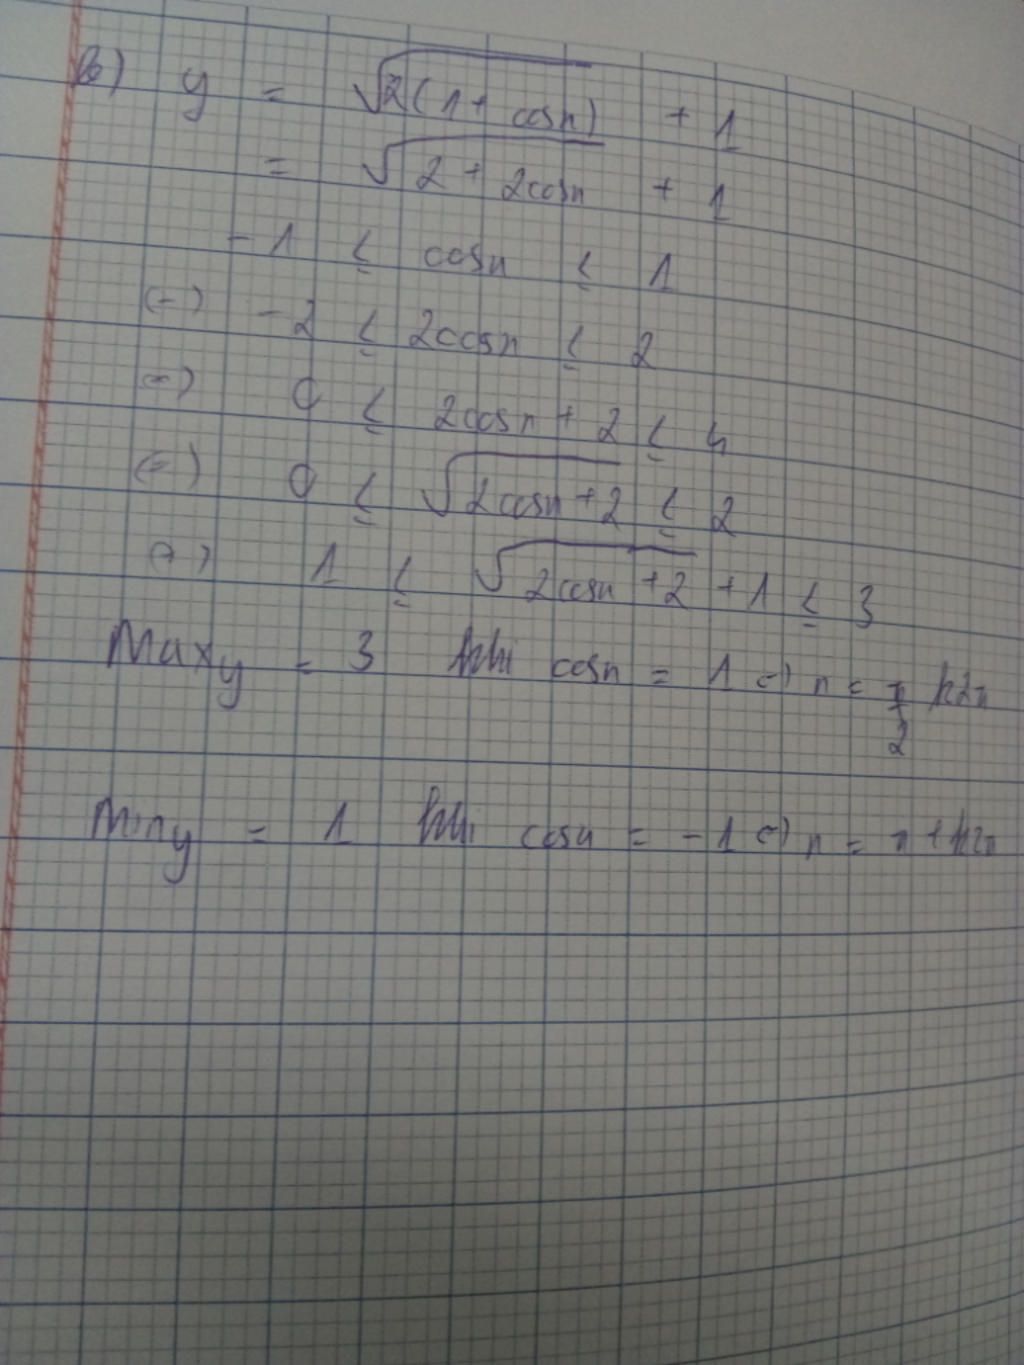 b) y = √2(1 + cosx) + 1
= √2 + 2cosx + 1
-1 ≤ cosx ≤ 1
(=) -2 ≤ 2cosx ≤ 2
(=) 0 ≤ 2cosx + 2 ≤ 4
(=) 0 ≤ √2cosx + 2 ≤ 2
(=) 1 ≤ √2cosx + 2 + 1 ≤ 3
Max y = 3 khi cosx = 1 (=) x = π/2 k2π
Min y = 1 khi cosx = -1 (=) x = π + k2π